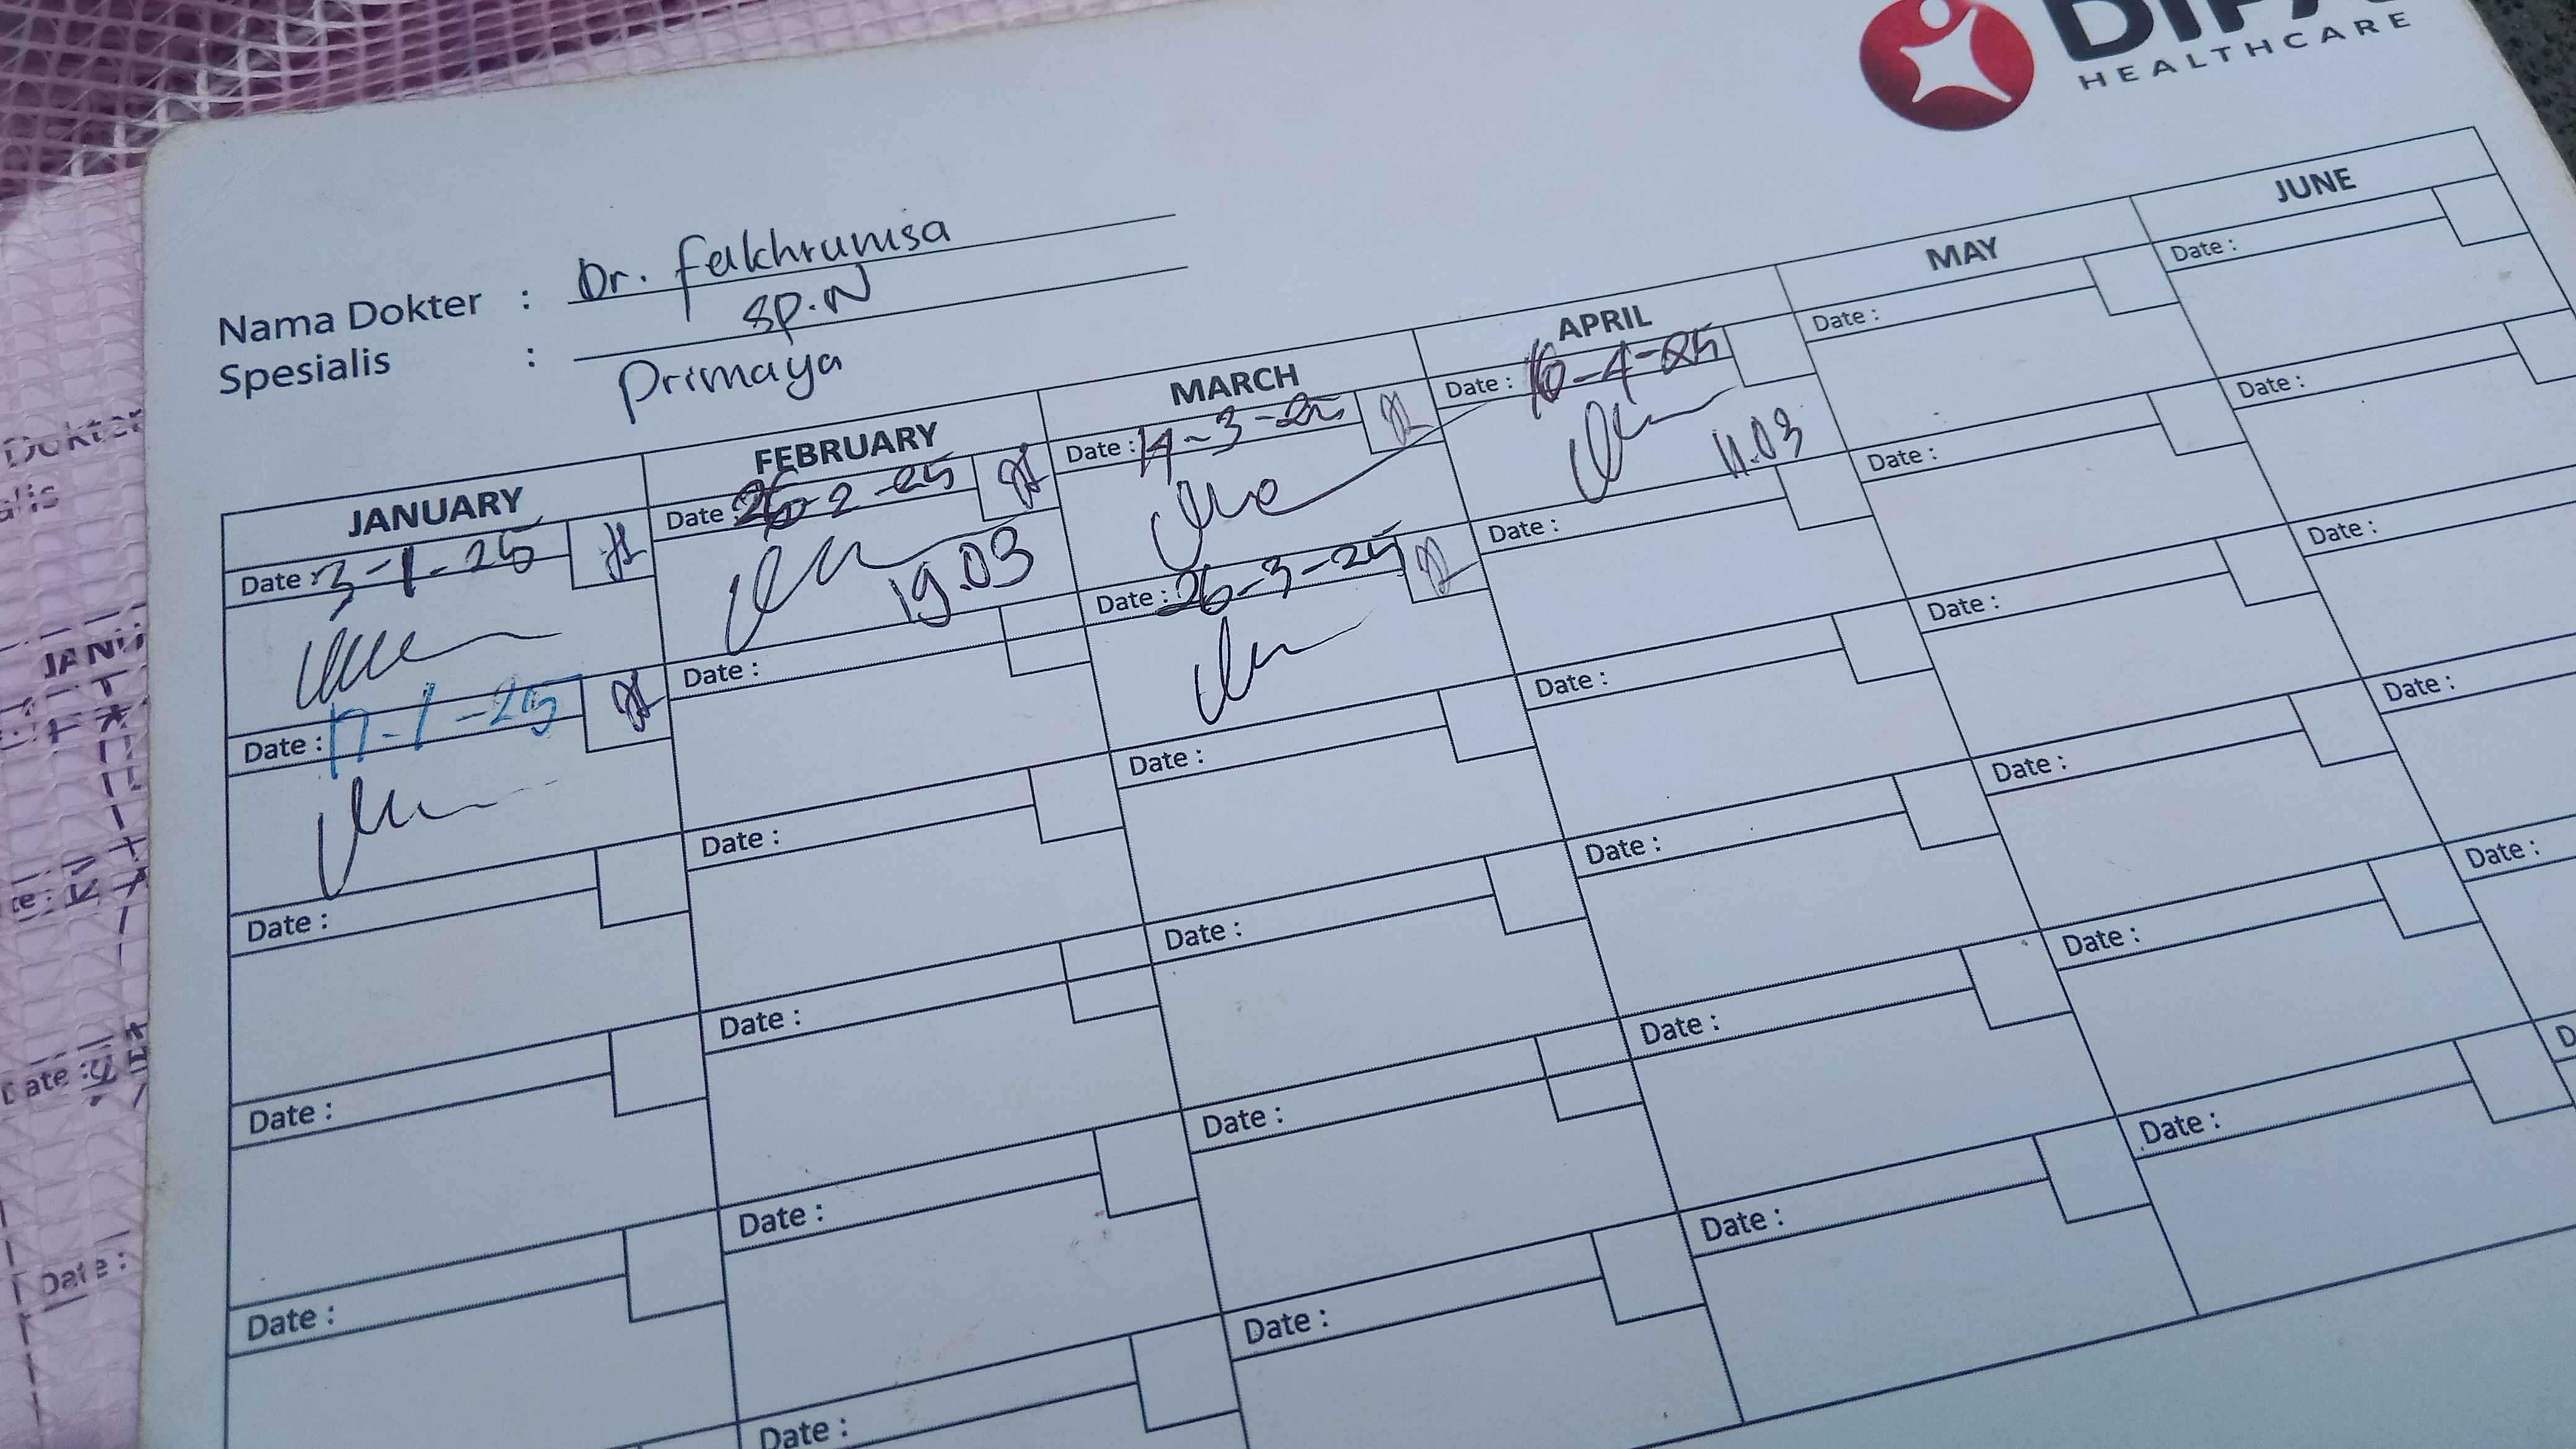 HEALTHCARE
Nama Dokter : Dr. Fakhrunisa
Spesialis : SP.N
Primaya
JANUARY FEBRUARY MARCH APRIL MAY JUNE
Date : 3-1-25 Date : 26-2-25 Date : 14-3-25 Date : 10-4-25 Date : Date :
19.03 11.03
Date : 17-1-25 Date : Date : 26-3-25 Date : Date : Date :
Date : Date : Date : Date : Date : Date :
Date : Date : Date : Date : Date : Date :
Date : Date : Date : Date : Date : Date :
Date : Date : Date : Date :